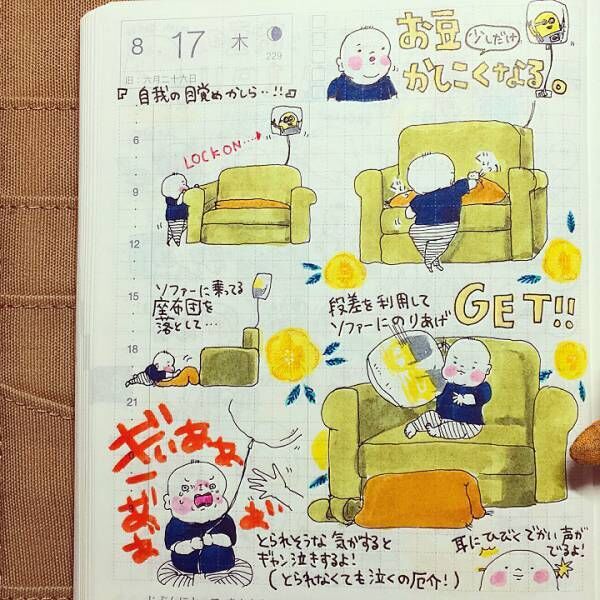 8 17 木
229
旧:六月二十六日
お豆 少しだけ
かしこくなる。
『自我の目覚めかしら‥!!』
6
LOCK ON…
9
12
15
ソファーに乗ってる
座布団を
落として…
段差を利用して
ソファーにのりあげ
GET!!
18
21
ぎぃああぁ
とられそうな気がすると
ギャン泣きするよ!
(とられなくても泣くの厄介!)
耳にひびくでかい声が
でるよ!